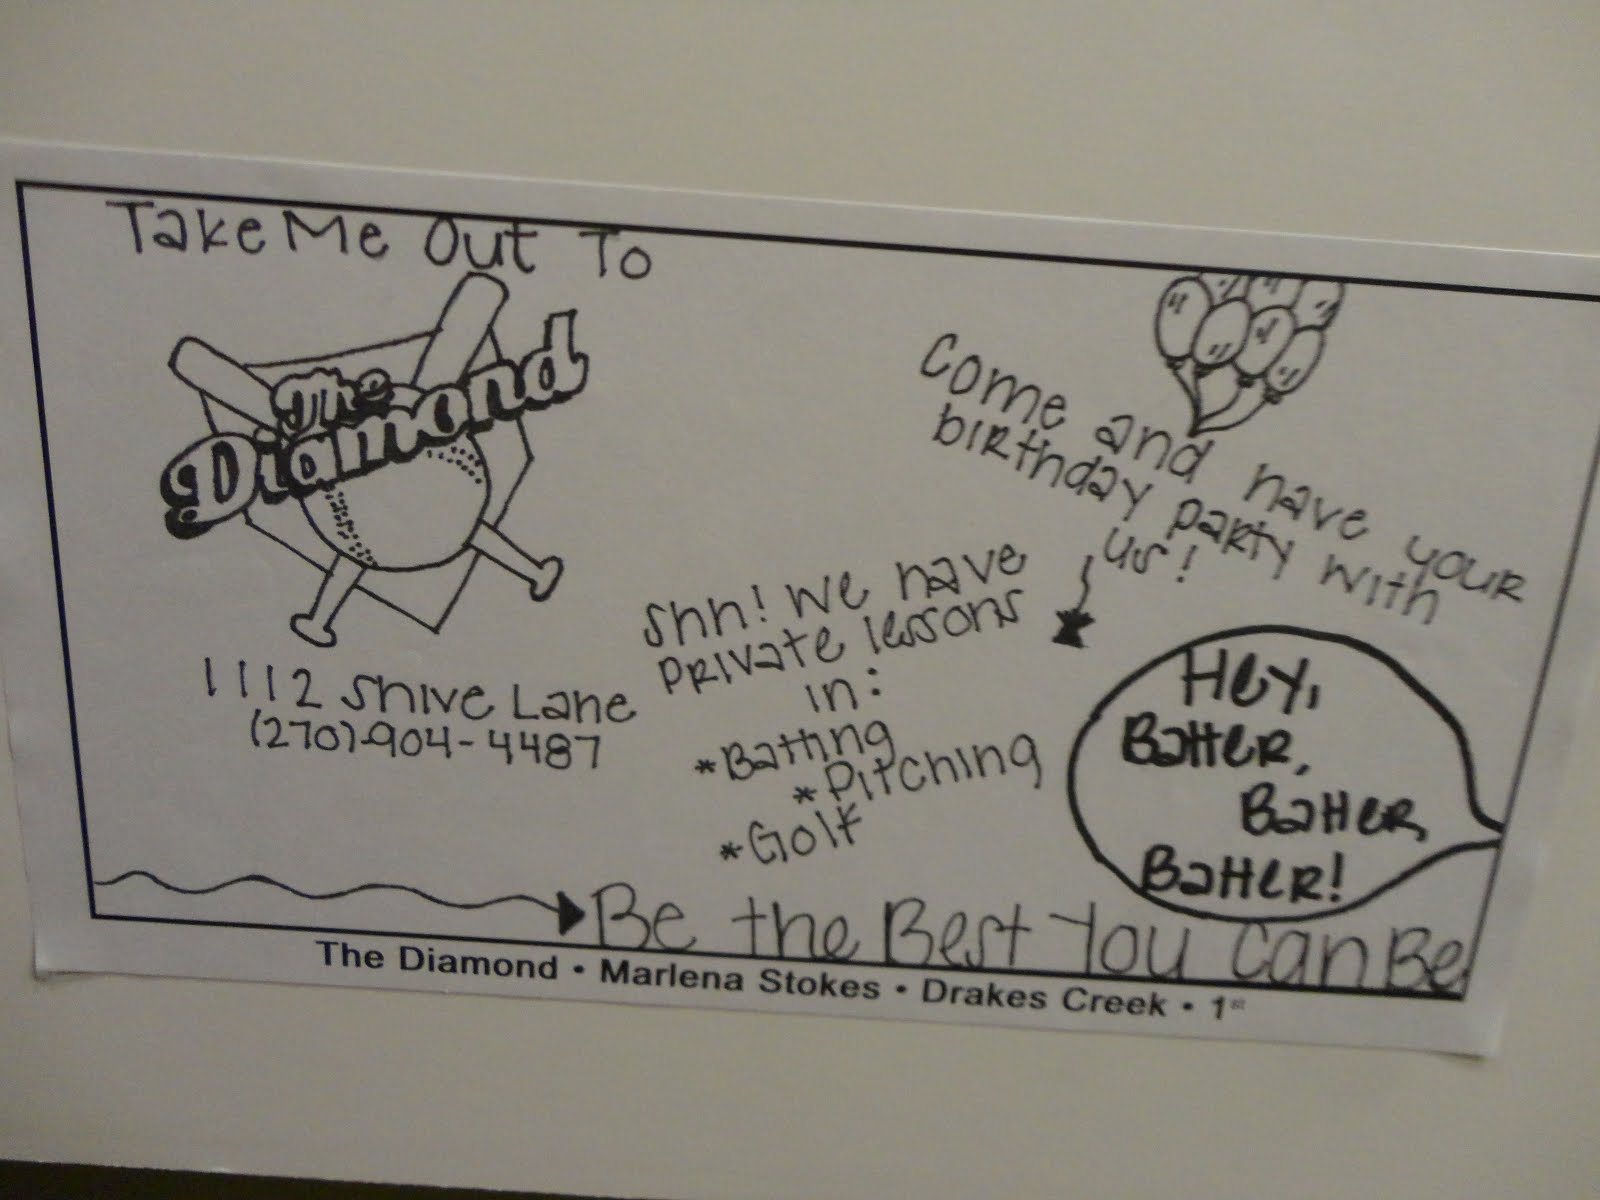 Take Me Out To
The
Diamond
1112 Shive Lane
(270)-904-4487
Come and have your
birthday party with
us!
Shh! We have
private lessons
in:
*Batting
*Pitching
*Golf
Hey,
Batter,
Batter,
Batter!
Be the Best You Can Be
The Diamond • Marlena Stokes • Drakes Creek • 1st